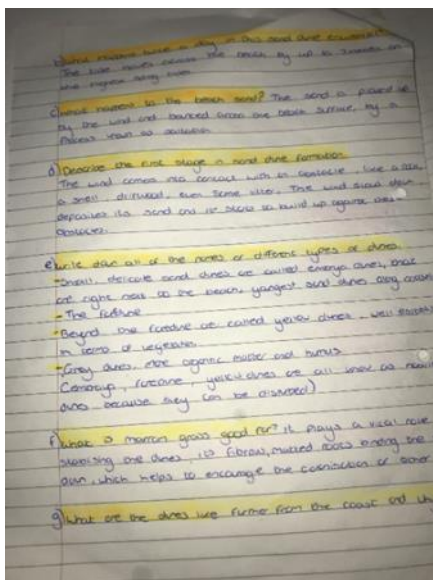 b) What moves twice a day in this sand dune
The tide moves across the beach by up to 7 metres on
the highest spring tides
c) What happens to the beach sand? The sand is picked up
by the wind and bounced across the beach surface, by a
process known as saltation
d) Describe the first stage in sand dune formation
The wind comes into contact with an obstacle, like a
a shell, driftwood, even some litter. The wind slows down
deposites its sand and it starts to build up against
obstacles.
e) Write down all of the names of different types of dunes.
- Small, delicate sand dunes are called embryo dunes, that
are right next to the beach, youngest sand dunes along
- The foredune
- Beyond the foredune are called yellow dunes, well
in terms of vegetation
- Grey dunes, more organic matter and humus
(embryo, foredune, yellow dunes are all know as
dunes because they can be disturbed)
f) What is marram grass good for? it plays a vital role
stabilising the dunes, it's fibrous, matted roots binding the
down, which helps to encourage the colonisation of other
g) What are the dunes like further from the coast and